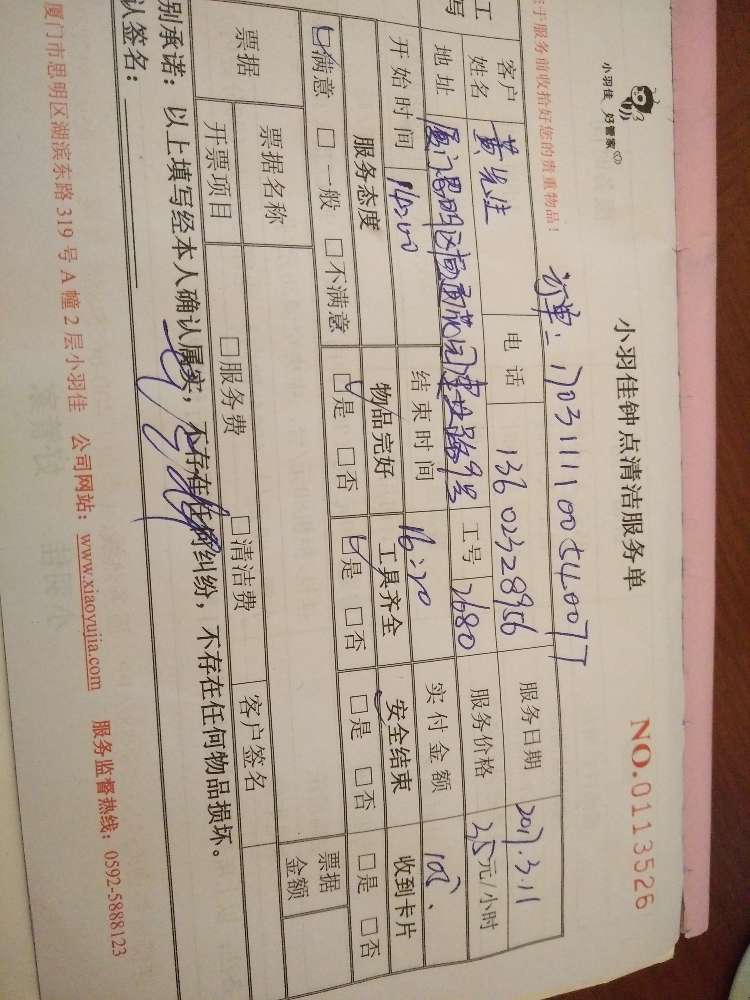 小羽佳 好管家
小羽佳钟点清洁服务单
NO.0113526
订单: 1703111100540077
于服务前收拾好您的贵重物品!
工
写
客户姓名 黄先生 电话 13602328956 服务日期 2017.3.11
地址 厦门思明区 工号 2680 服务价格 35元/小时
开始时间 14:00 结束时间 16:20 实付金额
服务态度 物品完好 工具齐全 安全结束 收到卡片
☑满意 □一般 □不满意 ☑是 □否 ☑是 □否 ☑是 □否 □是 □否
票据 票据名称 票据金额
开票项目 □服务费 □清洁费 客户签名
别承诺: 以上填写经本人确认属实, 不存在任何纠纷, 不存在任何物品损坏。
认签名:
厦门市思明区湖滨东路 319 号 A 幢 2 层小羽佳 公司网站: www.xiaoyujia.com 服务监督热线: 0592-5888123